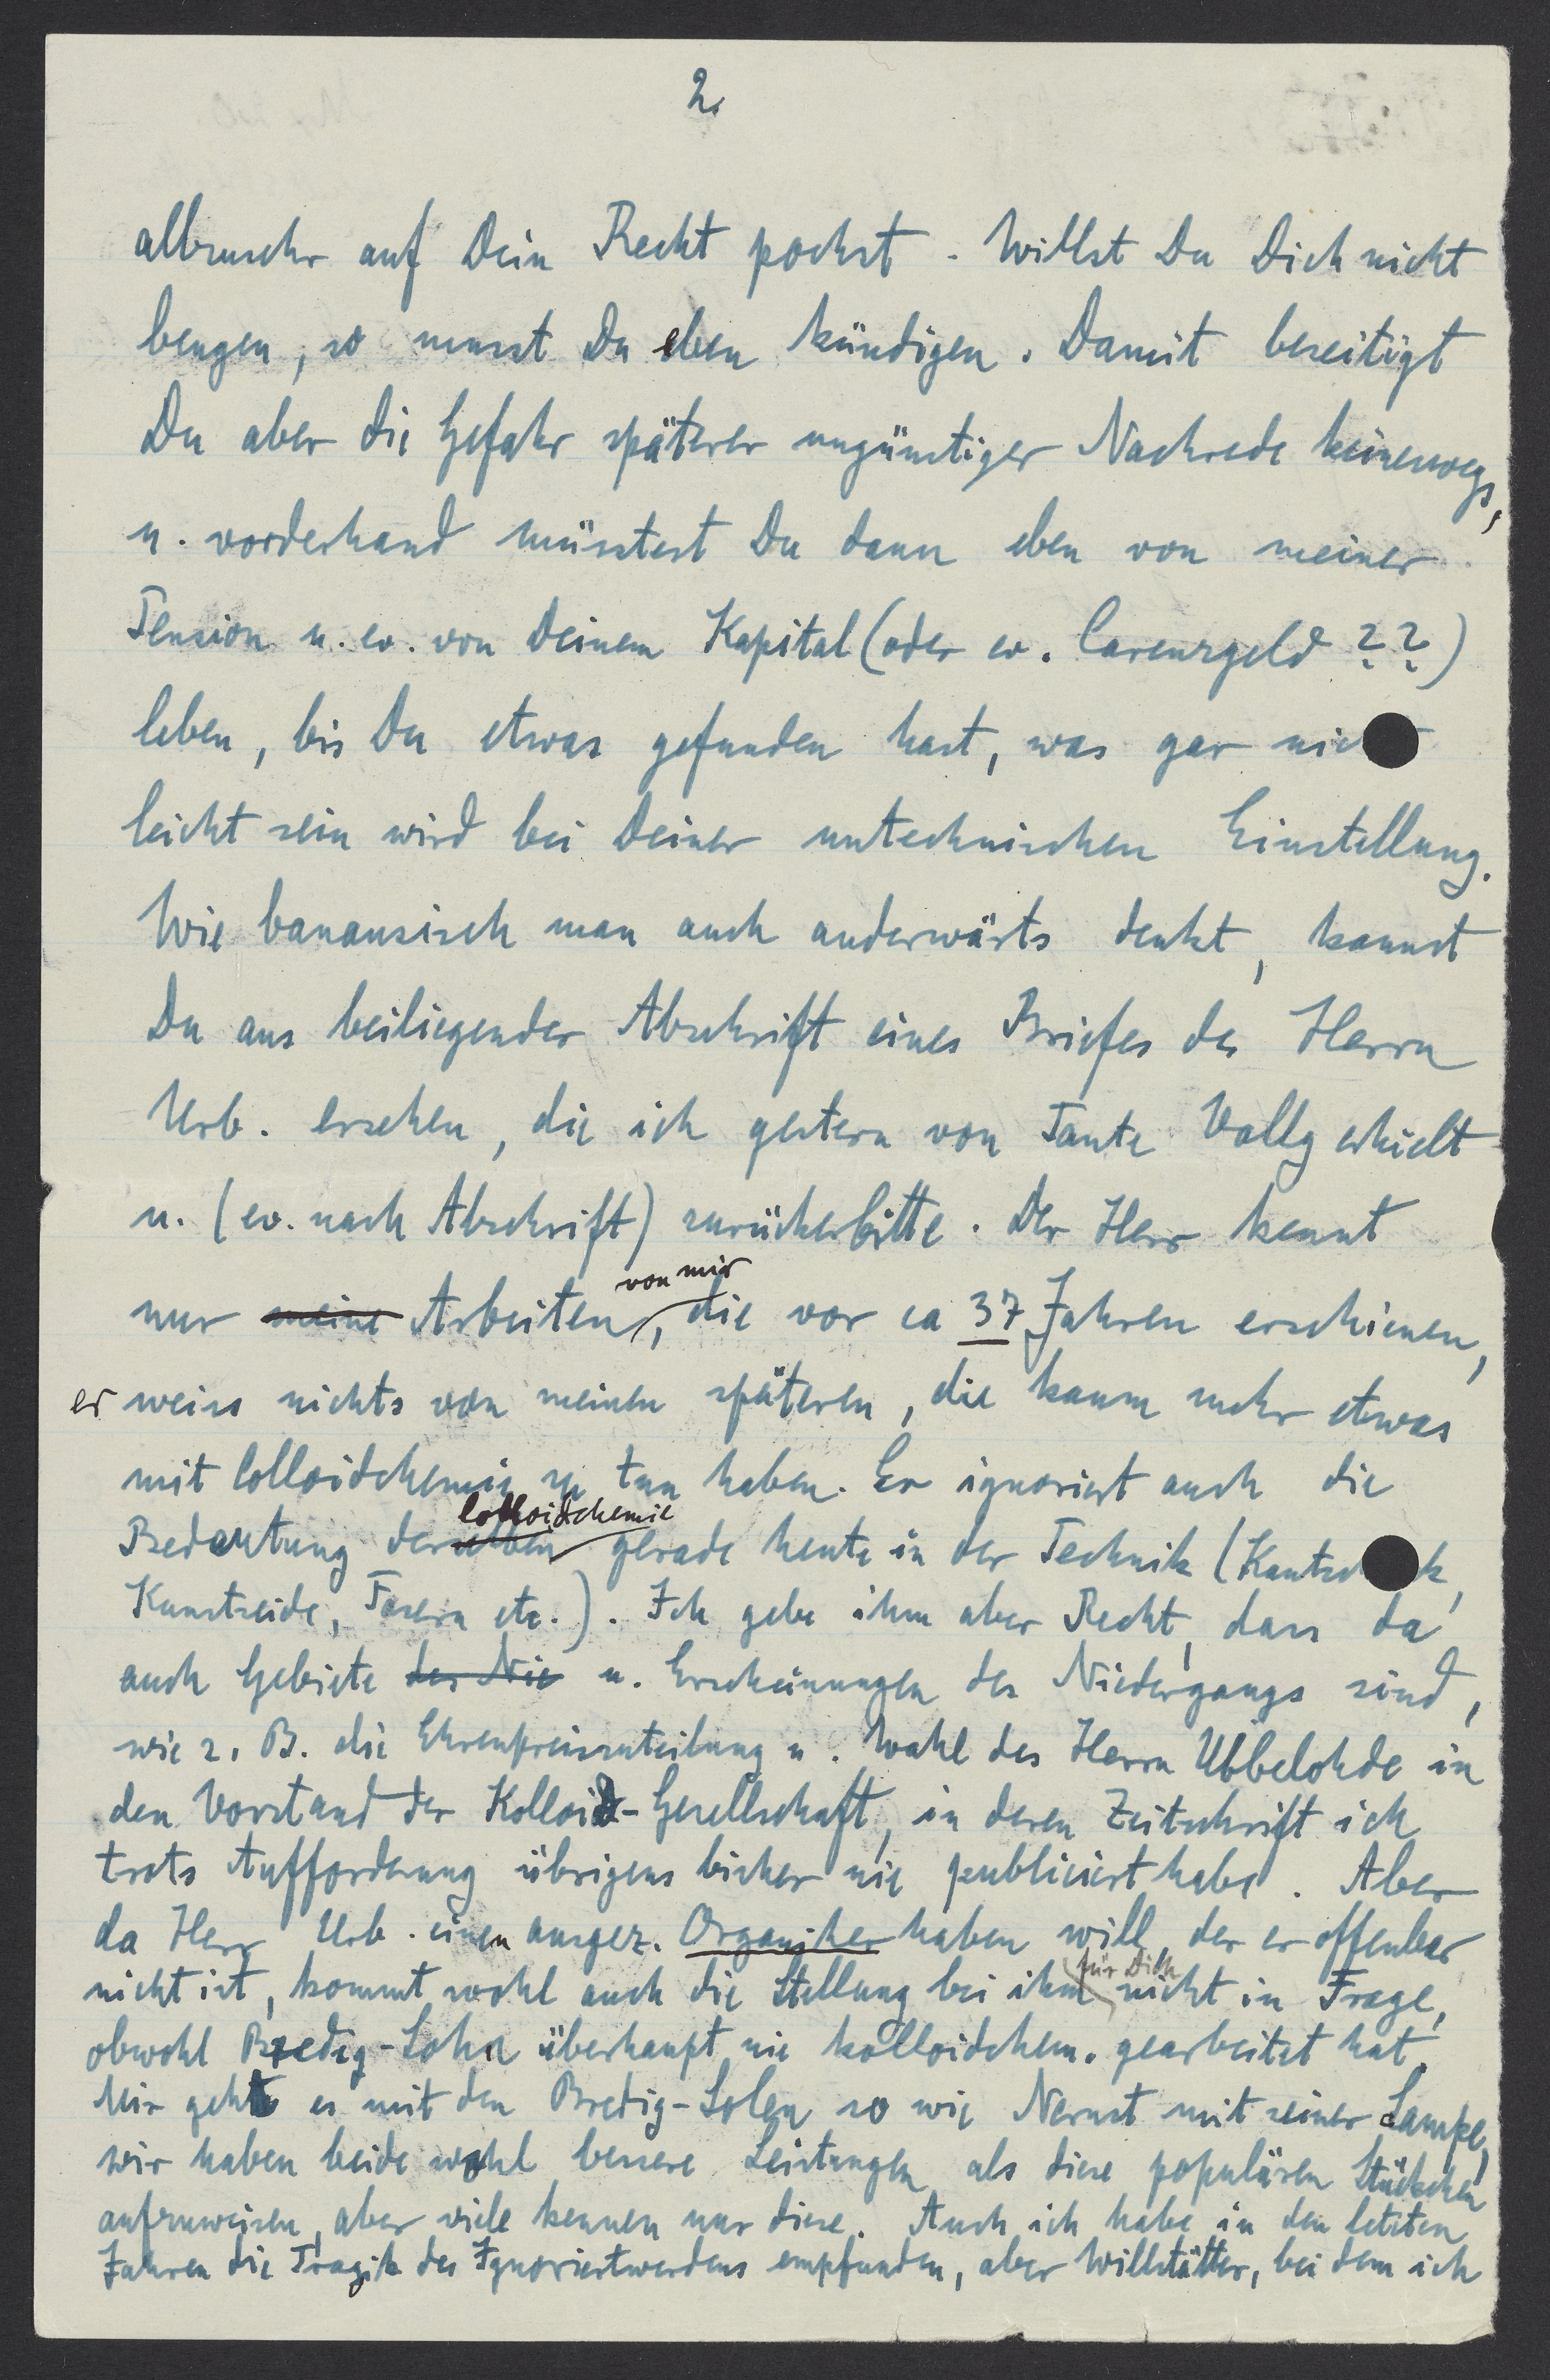 2.
allzusehr auf Dein Recht pochst. Willst Du Dich nicht
beugen, so musst Du eben kündigen. Damit beseitigt
Du aber die Gefahr späterer ungünstiger Nachrede keineswegs,
u. vorderhand müsstest Du dann eben von meiner
Pension u. ev. von Deinem Kapital (oder ev. Carenzgeld ??)
leben, bis Du etwas gefunden hast, was gar nicht
leicht sein wird bei Deiner untechnischen Einstellung.
Wie banausisch man auch anderwärts denkt, kannst
Du aus beiliegender Abschrift eines Briefes des Herrn
Urb. ersehen, die ich gestern von Tante Vally erhielt
u. (ev. nach Abschrift) zurückerbitte. Der Herr kennt
nur meine Arbeiten von mir, die vor ca 37 Jahren erschienen,
er weiss nichts von meinen späteren, die kaum mehr etwas
mit Colloidchemie zu tun haben. Er ignoriert auch die
Bedeutung derselben Colloidchemie gerade heute in der Technik (Kautschuk,
Kunstseide, Fasern etc.). Ich gebe ihm aber Recht, dass da
auch Gebiete des Nie u. Erscheinungen des Niedergangs sind,
wie z. B. die Ehrenpreiszuteilung u. Wahl des Herrn Ubbelohde in
den Vorstand der Kolloid-Gesellschaft, in deren Zeitschrift ich
trots Aufforderung übrigens bisher nie publiciert habe. Aber
da Herr Urb. einen ausgez. Organiker haben will, der er offenbar
nicht ist, kommt wohl auch die Stellung bei ihm für Dich nicht in Frage,
obwohl Bredig-Sohn überhaupt nie kolloidchem. gearbeitet hat.
Mir geht es mit den Bredig-Solen so wie Nernst mit seiner Lampe,
wir haben beide wohl bessere Leistungen als diese populären Stückchen
aufzuweisen, aber viele kennen nur diese. Auch ich habe in den letzten
Jahren die Tragik des Ignoriertwerdens empfunden, aber Willstätter, bei dem ich